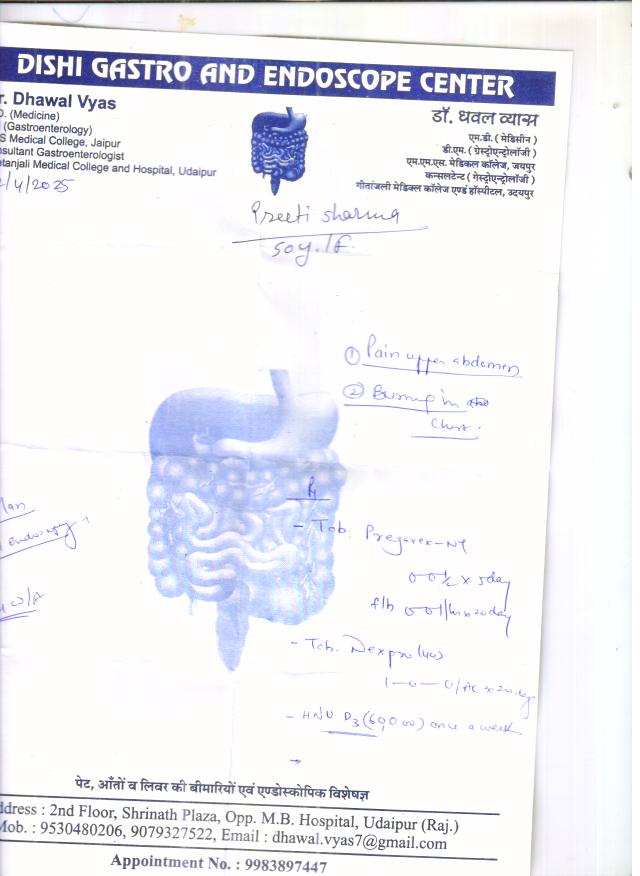 DISHI GASTRO AND ENDOSCOPE CENTER
r. Dhawal Vyas
D. (Medicine)
(Gastroenterology)
S Medical College, Jaipur
nsultant Gastroenterologist
etanjali Medical College and Hospital, Udaipur
/4/2025
डॉ. धवल व्यास
एम.डी. ( मेडिसीन )
डी.एम. ( ग्रेस्ट्रोएन्ट्रोलॉजी )
एम.एम.एस. मेडिकल कॉलेज, जयपुर
कन्सलटेन्ट ( गेस्ट्रोएन्ट्रोलॉजी )
गीतांजली मेडिकल कॉलेज एण्ड हॉस्पीटल, उदयपुर
Preeti sharma
50y./F.
① Pain upper abdomen
② Burning in
Chest.
lan
endoscopy
- Tab.
001/2 x 5day
f/b 001/ x 20day
- Tab. Nexpro (40)
1-0-0/AC x 20days
- D3 (60,000) once a week
पेट, आँतों व लिवर की बीमारियों एवं एण्डोस्कोपिक विशेषज्ञ
ddress : 2nd Floor, Shrinath Plaza, Opp. M.B. Hospital, Udaipur (Raj.)
Mob. : 9530480206, 9079327522, Email : dhawal.vyas7@gmail.com
Appointment No. : 9983897447